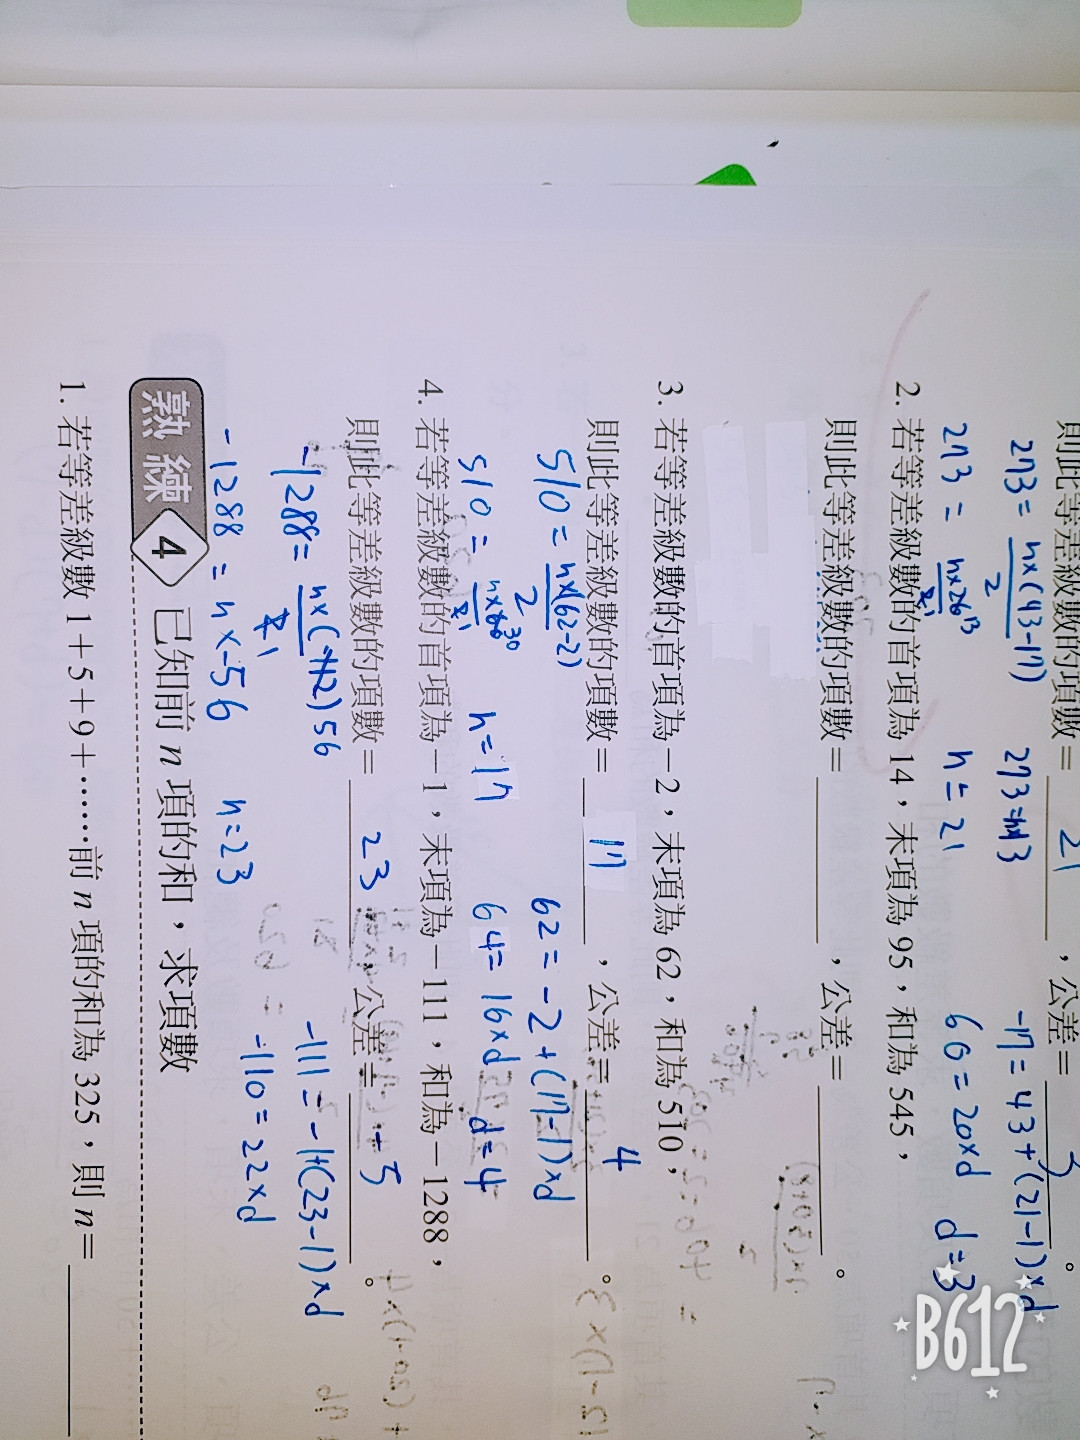 則此等差級數的項數＝ 21 ，公差＝ 3 。
273 = n×(43-17) / 2 273=n×13 -17 = 43+(21-1)×d
273 = n×26 13 / 2 1 n = 21 60 = 20×d d = 3
2. 若等差級數的首項為 14，末項為 95，和為 545，
則此等差級數的項數＝ ，公差＝ 。
3. 若等差級數的首項為－2，末項為 62，和為 510，
則此等差級數的項數＝ 17 ，公差＝ 4 。
510 = n×(62-2) / 2 62 = -2 + (17-1)×d
510 = n×60 30 / 2 1 n = 17 64 = 16×d d = 4
4. 若等差級數的首項為－1，末項為－111，和為－1288，
則此等差級數的項數＝ 23 ，公差＝ -5 。
-1288 = n×(-112) 56 / 2 1 -111 = -1+(23-1)×d
-1288 = n×-56 n=23 -110 = 22×d
熟練 4 已知前 n 項的和，求項數
1. 若等差級數 1＋5＋9＋……前 n 項的和為 325，則 n＝
B612